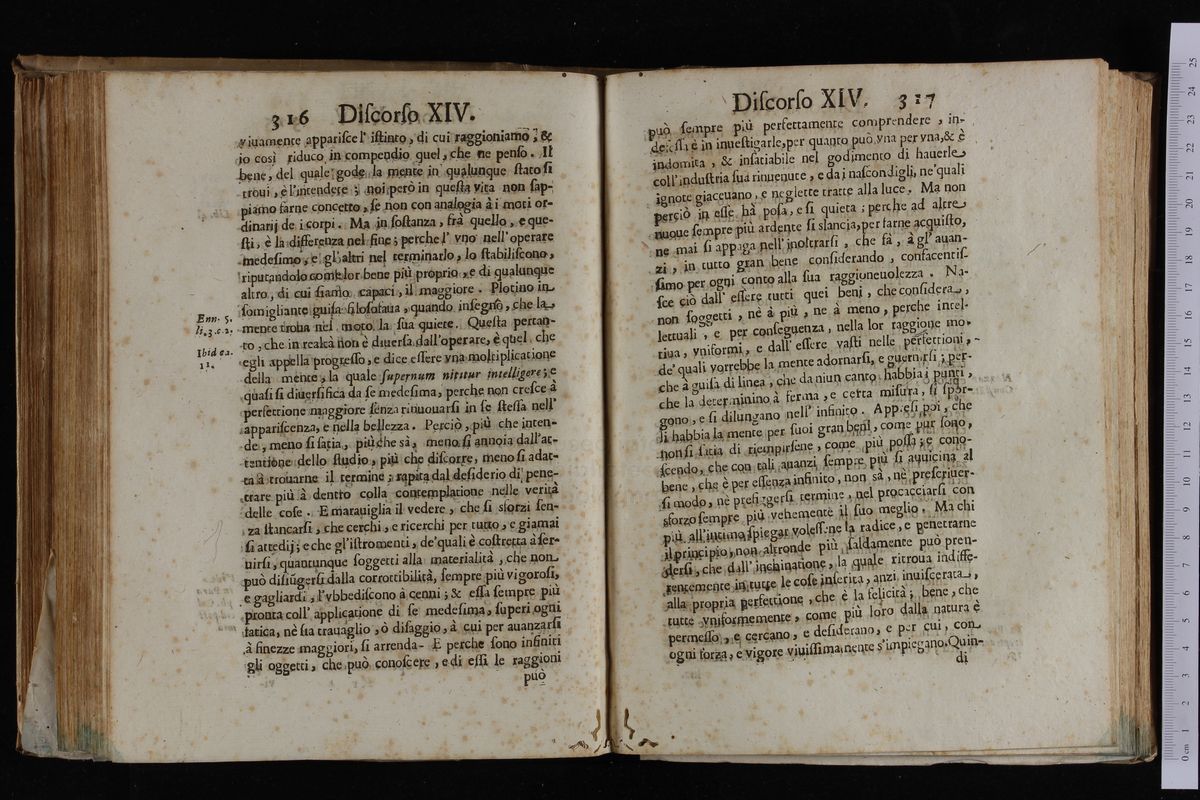 316 Diſcorſo XIV.
viuamente appariſce l' iſtinto, di cui raggioniamo, &
io così riduco in compendio quel, che ne penſo. Il
bene, del quale gode la mente in qualunque ſtato ſi
troui, è l'intendere; noi però in queſta vita non ſap-
piamo farne concetto, ſe non con analogia à i moti or-
dinarij de i corpi. Ma in ſoſtanza, frà quello, e que-
ſti, è la differenza nel fine; perche l' vno nell' operare
medeſimo, e gl'altri nel terminarlo, lo ſtabiliſcono,
riputandolo come lor bene più proprio, e di qualunque
altro, di cui ſiamo capaci, il maggiore. Plotino in
ſomigliante guiſa filoſofaua, quando inſegnò, che la
Enn. 5.
li. 3. c. 2.
mente troua nel moto la ſua quiete. Queſta pertan-
to, che in realtà non è diuerſa dall'operare, è quel che
Ibid c 2.
11.
egli appella progreſſo, e dice eſſere vna moltiplicatione
della mente, la quale ſupernum nititur intelligere; e
quaſi ſi diuerſifica da ſe medeſima, perche non creſce à
perfettione maggiore ſenza rinuouarſi in ſe ſteſſa nell'
appariſcenza, e nella bellezza. Perciò, più che inten-
de, meno ſi ſatia, più che sà, meno ſi annoia dall'at-
tentione dello ſtudio, più che diſcorre, meno ſi adat-
ta à trouarne il termine; rapita dal deſiderio di pene-
trare più à dentro colla contemplatione nelle verità
delle coſe. E marauiglia il vedere, che ſi sforzi ſen-
za ſtancarſi, che cerchi, e ricerchi per tutto, e giamai
ſi attedij; e che gl'iſtromenti, de'quali è coſtretta à ſer-
uirſi, quantunque ſoggetti alla materialità, che non
può diſiūgerſi dalla corrottibilità, ſempre più vigoroſi,
e gagliardi, l'vbbediſcono à cenni; & eſſa ſempre più
pronta coll' applicatione di ſe medeſima, ſuperi ogni
fatica, nè ſia trauaglio, ò diſaggio, à cui per auanzarſi
à finezze maggiori, ſi arrenda- E perche ſono infiniti
gli oggetti, che può conoſcere, e di eſſi le raggioni
può
Diſcorſo XIV. 317
può ſempre più perfettamente comprendere, in-
defeſſa è in inueſtigarle, per quanto può vna per vna, & è
indomita, & inſatiabile nel godimento di hauerle
coll'induſtria ſua rinuenute, e da i naſcondigli, ne'quali
ignote giaceuano, e neglette tratte alla luce. Ma non
perciò in eſſe hà poſa, e ſi quieta; perche ad altre
nuoue ſempre più ardente ſi slancia, per farne acquiſto,
ne mai ſi appaga nell'inoltrarſi, che fà, à gl' auan-
zi, in tutto gran bene conſiderando, confacentiſ-
ſimo per ogni conto alla ſua raggioneuolezza. Na-
ſce ciò dall' eſſere tutti quei beni, che conſidera,
non ſoggetti, nè à più, ne à meno, perche intel-
lettuali, e per conſeguenza, nella lor raggione mo-
tiua, vniformi, e dall' eſſere vaſti nelle perfettioni,
de' quali vorrebbe la mente adornarſi, e guernirſi; per-
che à guiſa di linea, che da niun canto habbia i punti,
che la determinino à ferma, e certa miſura, ſi ſpor-
gono, e ſi dilungano nell' infinito. Appreſi poi, che
li habbia la mente per ſuoi gran beni, come pur ſono,
non ſi ſatia di riempirſene, come più poſſa; e cono-
ſcendo, che con tali auanzi ſempre più ſi auuicina al
bene, che è per eſſenza infinito, non sà, nè preſcriuer-
ſi modo, nè prefiggerſi termine, nel procacciarſi con
sforzo ſempre più vehemente il ſuo meglio. Ma chi
più all'intimo ſpiegar voleſſene la radice, e penetrarne
il principio, non altronde più ſaldamente può pren-
derſi, che dall' inchinatione, la quale ritroua indiffe-
rentemente in tutte le coſe inſerita, anzi inuiſcerata,
alla propria perfettione, che è la felicità; bene, che
tutte vniformemente, come più loro dalla natura è
permeſſo, e cercano, e deſiderano, e per cui, con
ogni forza, e vigore viuiſſimamente s'impiegano. Quin-
di